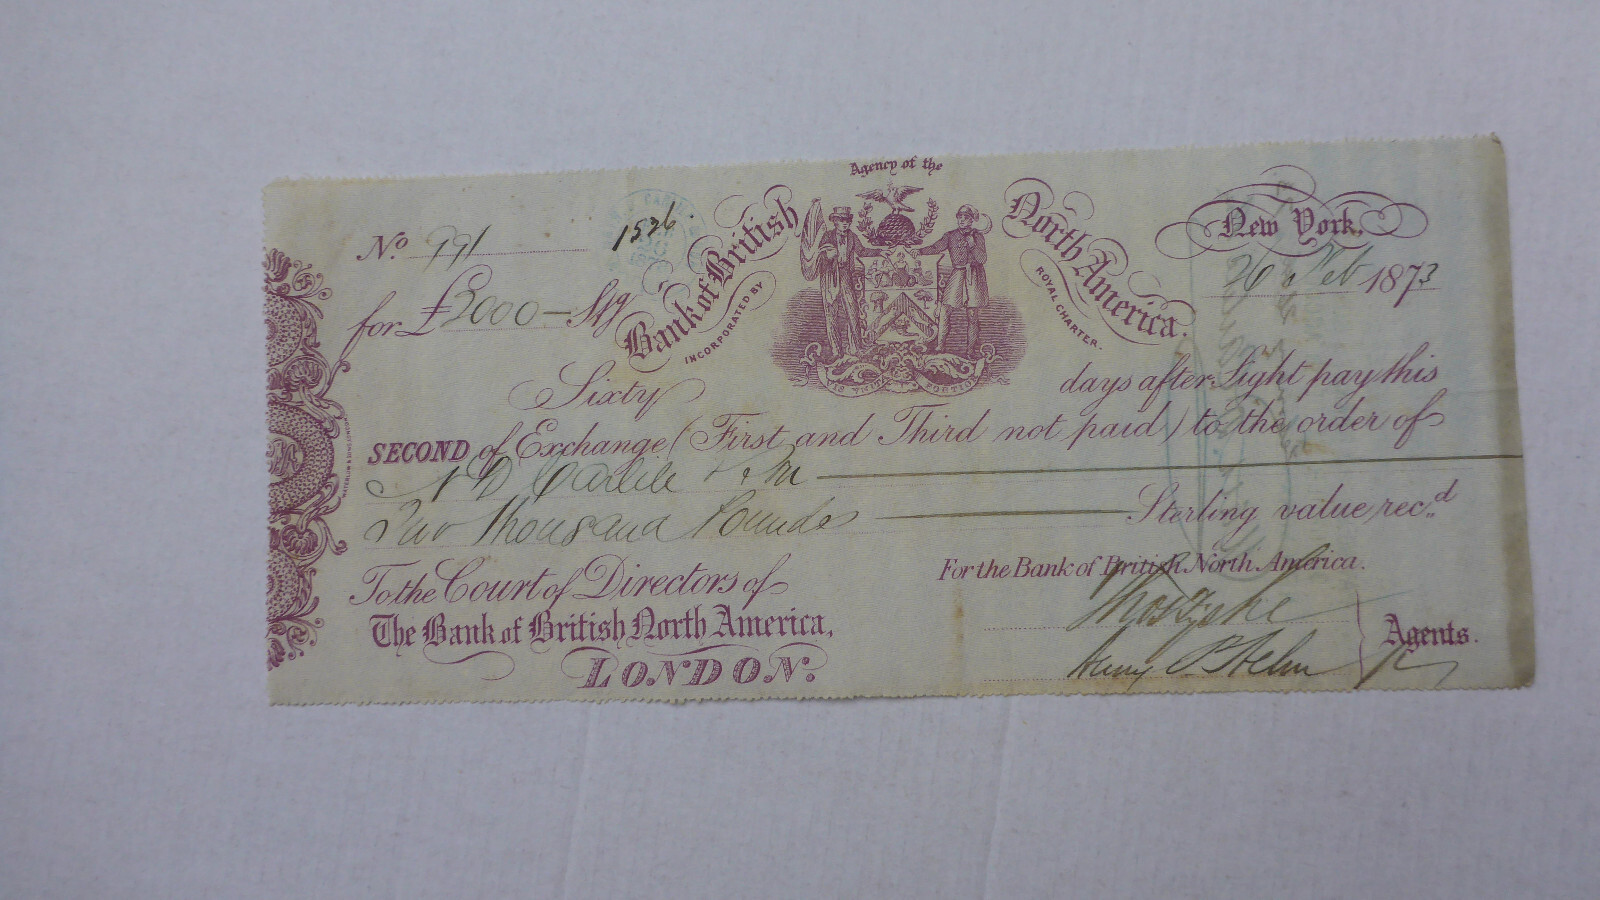 Agency of the
Bank of British North America.
INCORPORATED BY ROYAL CHARTER.
New York,
No. 991
1526
26 Feb 1873
for £2000 — Stg
Sixty days after Sight pay this
SECOND of Exchange (First and Third not paid) to the order of
N D Carlile
Two Thousand Pounds Sterling value rec.d
To the Court of Directors of
The Bank of British North America,
LONDON.
For the Bank of British North America.
Agents.